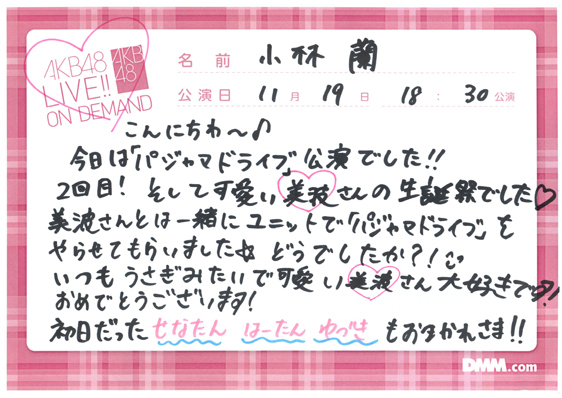 AKB48
LIVE!!
ON DEMAND
AKB
48
名前 小林 蘭
公演日 11月 19日 18:30公演
こんにちわ〜♪
今日は「パジャマドライブ」公演でした!!
2回目! そして可愛い美波さんの生誕祭でした♡
美波さんとは一緒にユニットで「パジャマドライブ」を
やらせてもらいましたね どうでしたか?!
いつもうさぎみたいで可愛い美波さん大好きです!
おめでとうございます!
初日だった せなたん はーたん ゆづき もおつかれさま!!
DMM.com